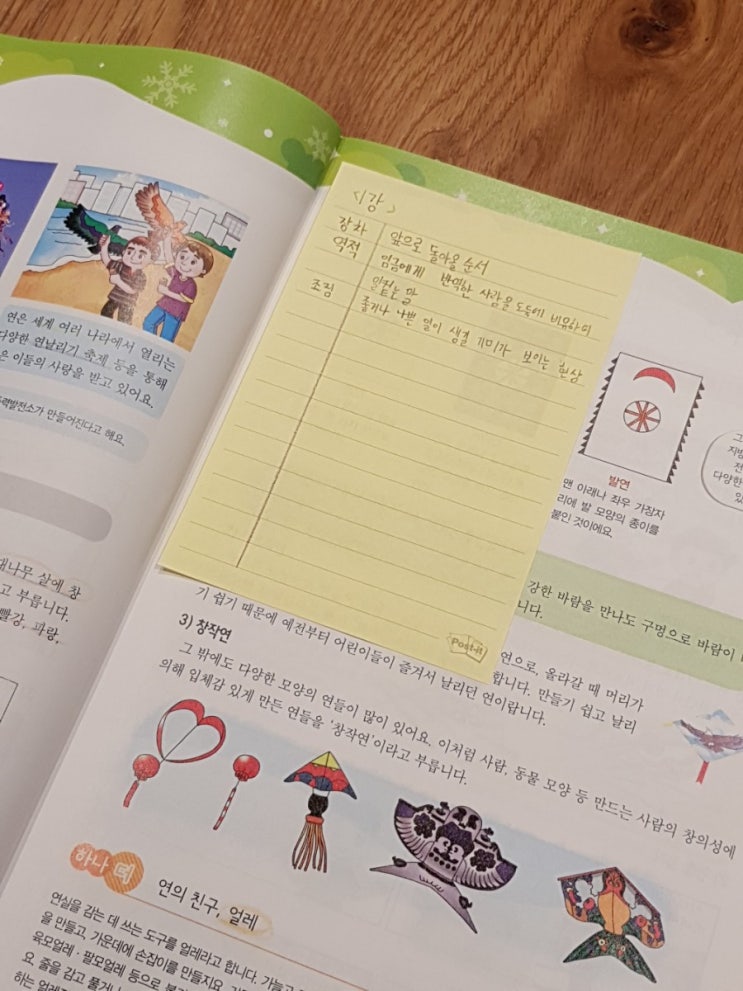 연은 세계 여러 나라에서 열리는
다양한 연날리기 축제 등을 통해
은 이들의 사랑을 받고 있어요.
력발전소가 만들어진다고 해요.
대나무 살에 창
고 부릅니다.
빨강, 파랑,
<1강>
장차 앞으로 돌아올 순서
역적 임금에게 반역한 사람을 도둑에 비유하며
일컫는 말
조짐 좋거나 나쁜 일이 생길 기미가 보이는 현상
Post-it
발연
맨 아래나 좌우 가장자
리에 발 모양의 종이를
붙인 것이에요.
그
지방
전
다양한
있
강한 바람을 만나도 구멍으로 바람이
니다.
연으로, 올라갈 때 머리가
합니다. 만들기 쉽고 날리
기 쉽기 때문에 예전부터 어린이들이 즐겨서 날리던 연이랍니다.
3) 창작연
그 밖에도 다양한 모양의 연들이 많이 있어요. 이처럼 사람, 동물 모양 등 만드는 사람의 창의성에
의해 입체감 있게 만든 연들을 ‘창작연’이라고 부릅니다.
하나 더
연의 친구, 얼레
연실을 감는 데 쓰는 도구를 얼레라고 합니다. 가늘고
을 만들고, 가운데에 손잡이를 만들지요.
육모얼레·팔모얼레 등으로
요. 줄을 감고 풀게
하는 얼레